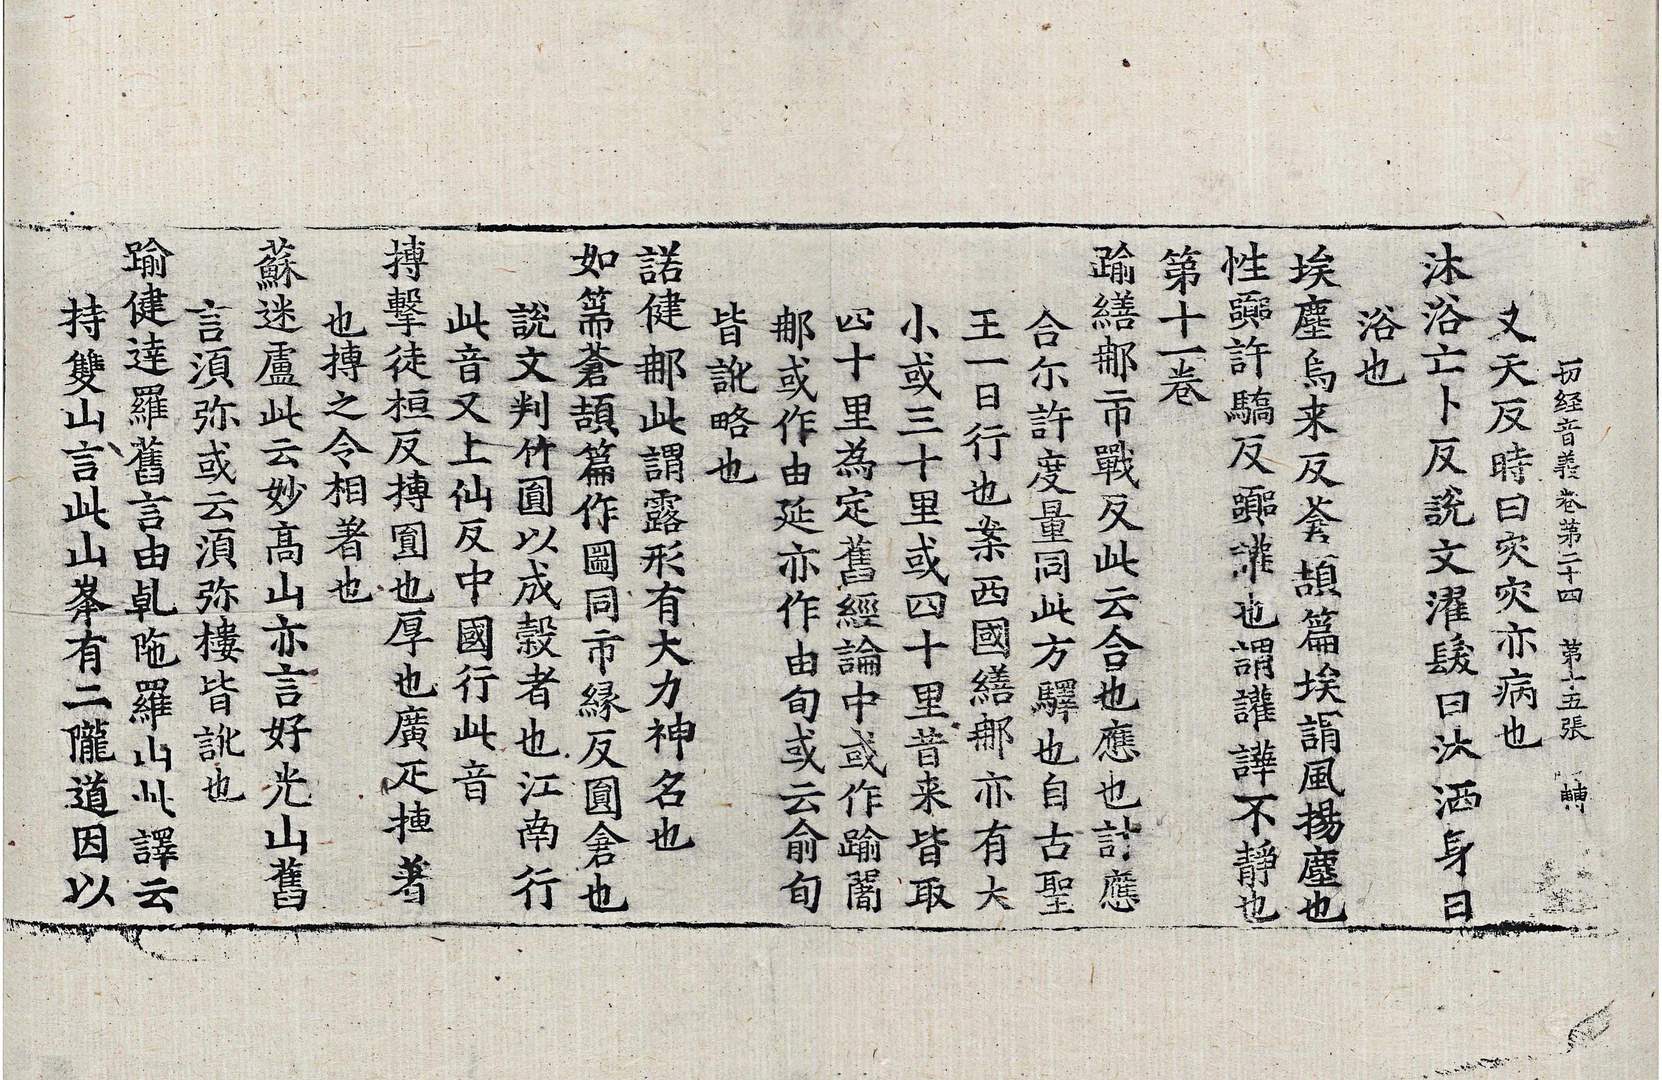 切經音義卷第二十四 第十五張 轉
又天反時曰灾灾亦病也
沐浴亡卜反說文濯髮曰沐洒身曰
浴也
埃塵烏来反蒼頡篇埃謂風揚塵也
性嚻許驕反嚻讙也謂讙譁不靜也
第十一卷
踰繕那市戰反此云合也應也計應
合尓許度量同此方驛也自古聖
王一日行也案西國繕那亦有大
小或三十里或四十里昔来皆取
四十里為定舊經論中或作踰闍
那或作由延亦作由旬或云俞旬
皆訛略也
諾健那此謂露形有大力神名也
如篅蒼頡篇作圌同市縁反圓倉也
說文判竹圓以成穀者也江南行
此音又上仙反中國行此音
摶擊徒桓反摶圓也厚也廣疋捶著
也摶之令相著也
蘇迷盧此云妙髙山亦言好光山舊
言湏弥或云湏弥樓皆訛也
踰健達羅舊言由乹陁羅山此譯云
持雙山言此山峯有二隴道因以